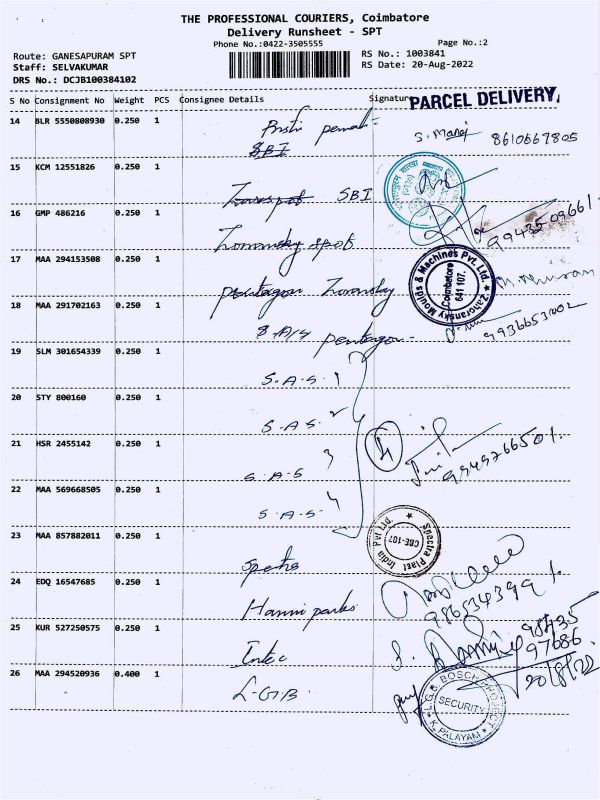 THE PROFESSIONAL COURIERS, Coimbatore
Delivery Runsheet - SPT
Phone No.:0422-3505555
Page No.:2
Route: GANESAPURAM SPT
RS No.: 1003841
Staff: SELVAKUMAR
RS Date: 20-Aug-2022
DRS No.: DCJB100384102
S No Consignment No Weight PCS Consignee Details Signature
PARCEL DELIVERY
14 BLR 5550808930 0.250 1
SBI
S. Manoj 8610667805
15 KCM 12551826 0.250 1
SBI
16 GMP 486216 0.250 1
Zoransky spot
9943509661
17 MAA 294153508 0.250 1
pentagon Zoransky
Zahoransky Moulds & Machines Pvt. Ltd.
Coimbatore
641 107.
18 MAA 291702163 0.250 1
S.A.S pentagon
9936653002
19 SLM 301654339 0.250 1
S.A.S. 1
20 STY 800160 0.250 1
S.A.S. 2
4
21 HSR 2455142 0.250 1
S.A.S 3
9949766501.
22 MAA 569668505 0.250 1
S.A.S. 4
23 MAA 857882011 0.250 1
Spectra
Spectra Plast India Pvt Ltd.
CBE-107
24 EDQ 16547685 0.250 1
Hanni parks
9865343991.
25 KUR 527250575 0.250 1
Intec
98435
97686
20/8/22
26 MAA 294520936 0.400 1
L.G.B
L.G.B. BOSCH PROJECT
SECURITY
K. PALAYAM